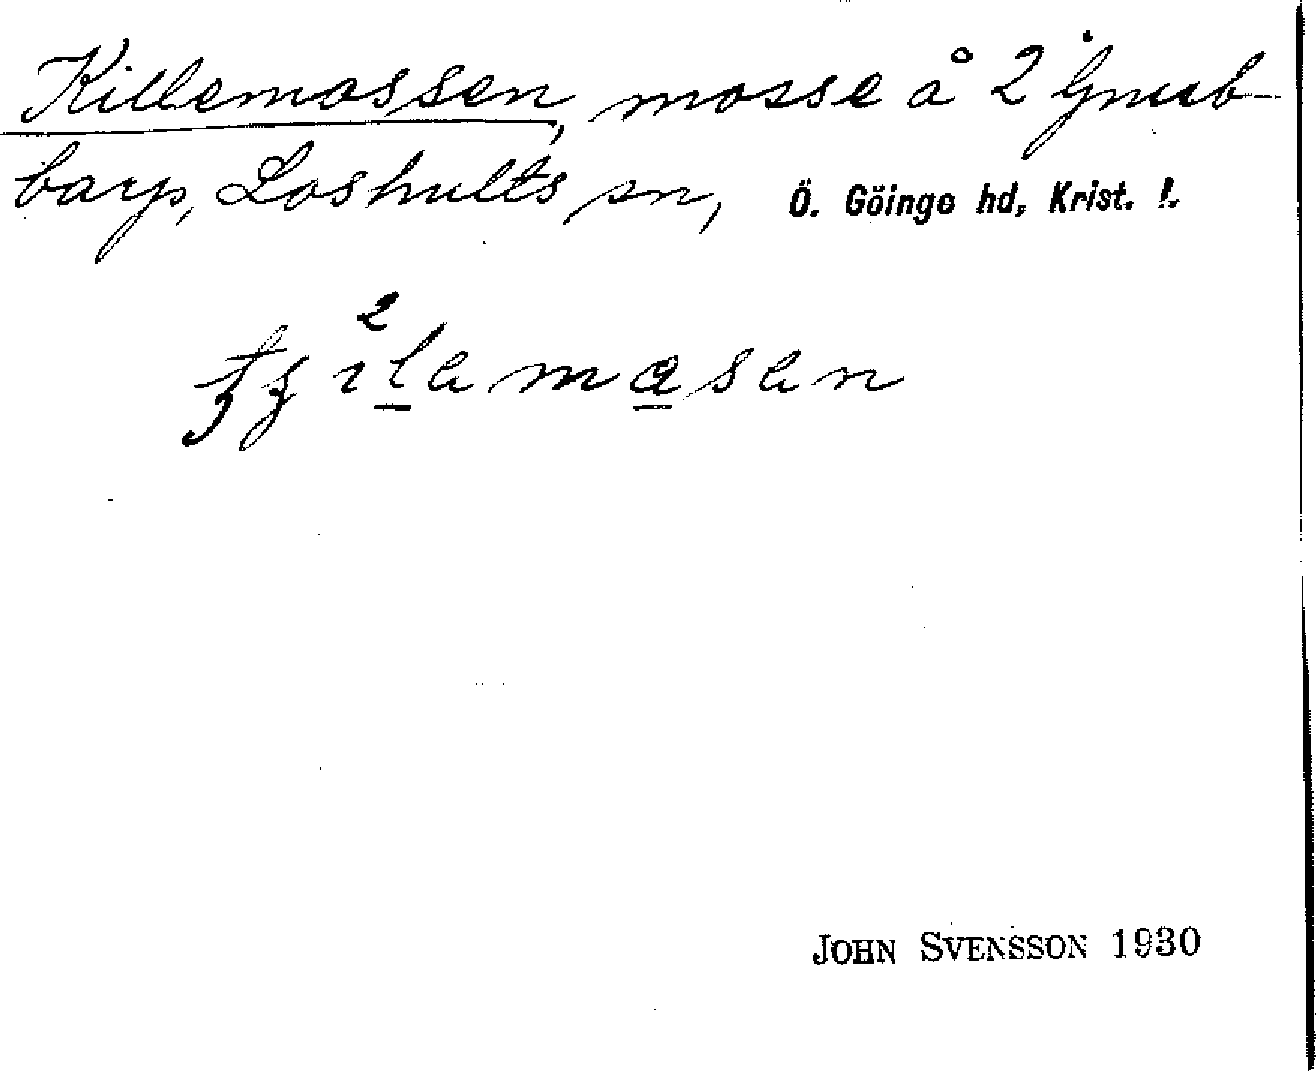 Killemossen, mosse å 2 Gnub-
barp, Loshults sn, Ö. Göinge hd, Krist. l.
2
JOHN SVENSSON 1930